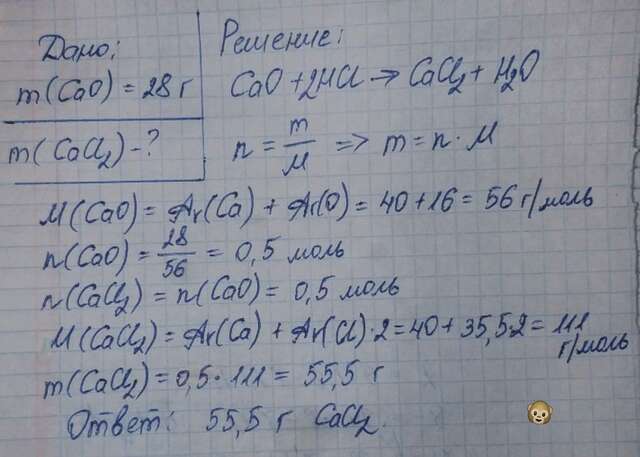 Дано:
m(CaO) = 28 г
m(CaCl₂) - ?
Решение:
CaO + 2HCl → CaCl₂ + H₂O
n = m/M => m = n · M
M(CaO) = Ar(Ca) + Ar(O) = 40 + 16 = 56 г/моль
n(CaO) = 28/56 = 0,5 моль
n(CaCl₂) = n(CaO) = 0,5 моль
M(CaCl₂) = Ar(Ca) + Ar(Cl)·2 = 40 + 35,5·2 = 111 г/моль
m(CaCl₂) = 0,5 · 111 = 55,5 г
Ответ: 55,5 г CaCl₂.